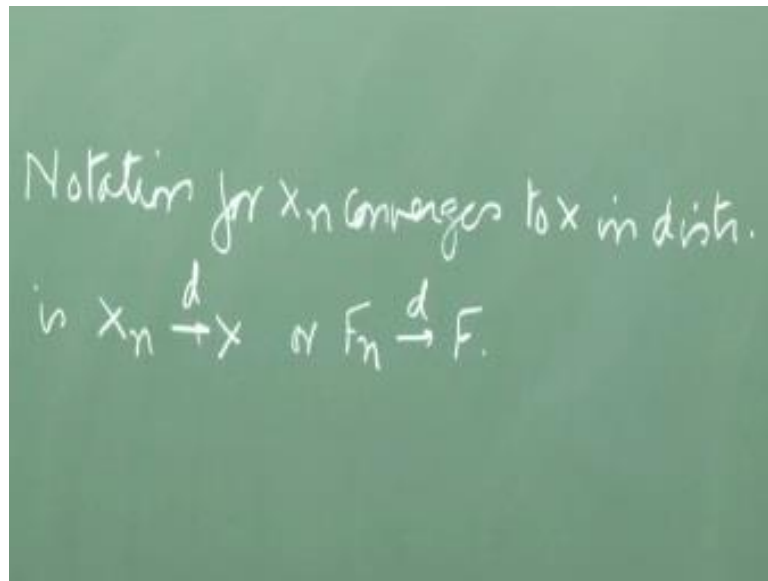 Notation for Xn converges to X in distn.
is Xn \xrightarrow{d} X or Fn \xrightarrow{d} F.